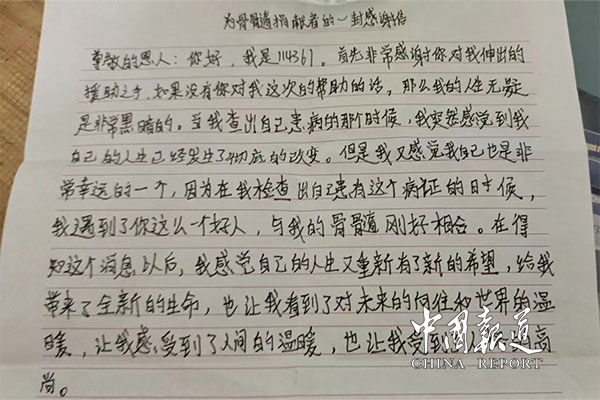 为骨髓捐献者的一封感谢信
尊敬的恩人：你好，我是114361。首先非常感谢你对我伸出的
援助之手，如果没有你对我这次的帮助的话，那么我的人生无疑
是非常黑暗的。当我查出自己患病的那个时候，我突然感觉到我
自己的人生已经发生了彻底的改变。但是我又感觉我自己也是非
常幸运的一个，因为在我检查出自己患有这个病症的日时候，
我遇到了你这么一个好人，与我的骨髓刚好相合。在得
知这个消息以后，我感觉自己的人生又重新有了新的希望，给我
带来了全新的生命，也让我看到了对未来的向往和世界的温
暖，让我感受到了人间的温暖，也让我受到 高
尚。
中國報道
CHINA REPORT